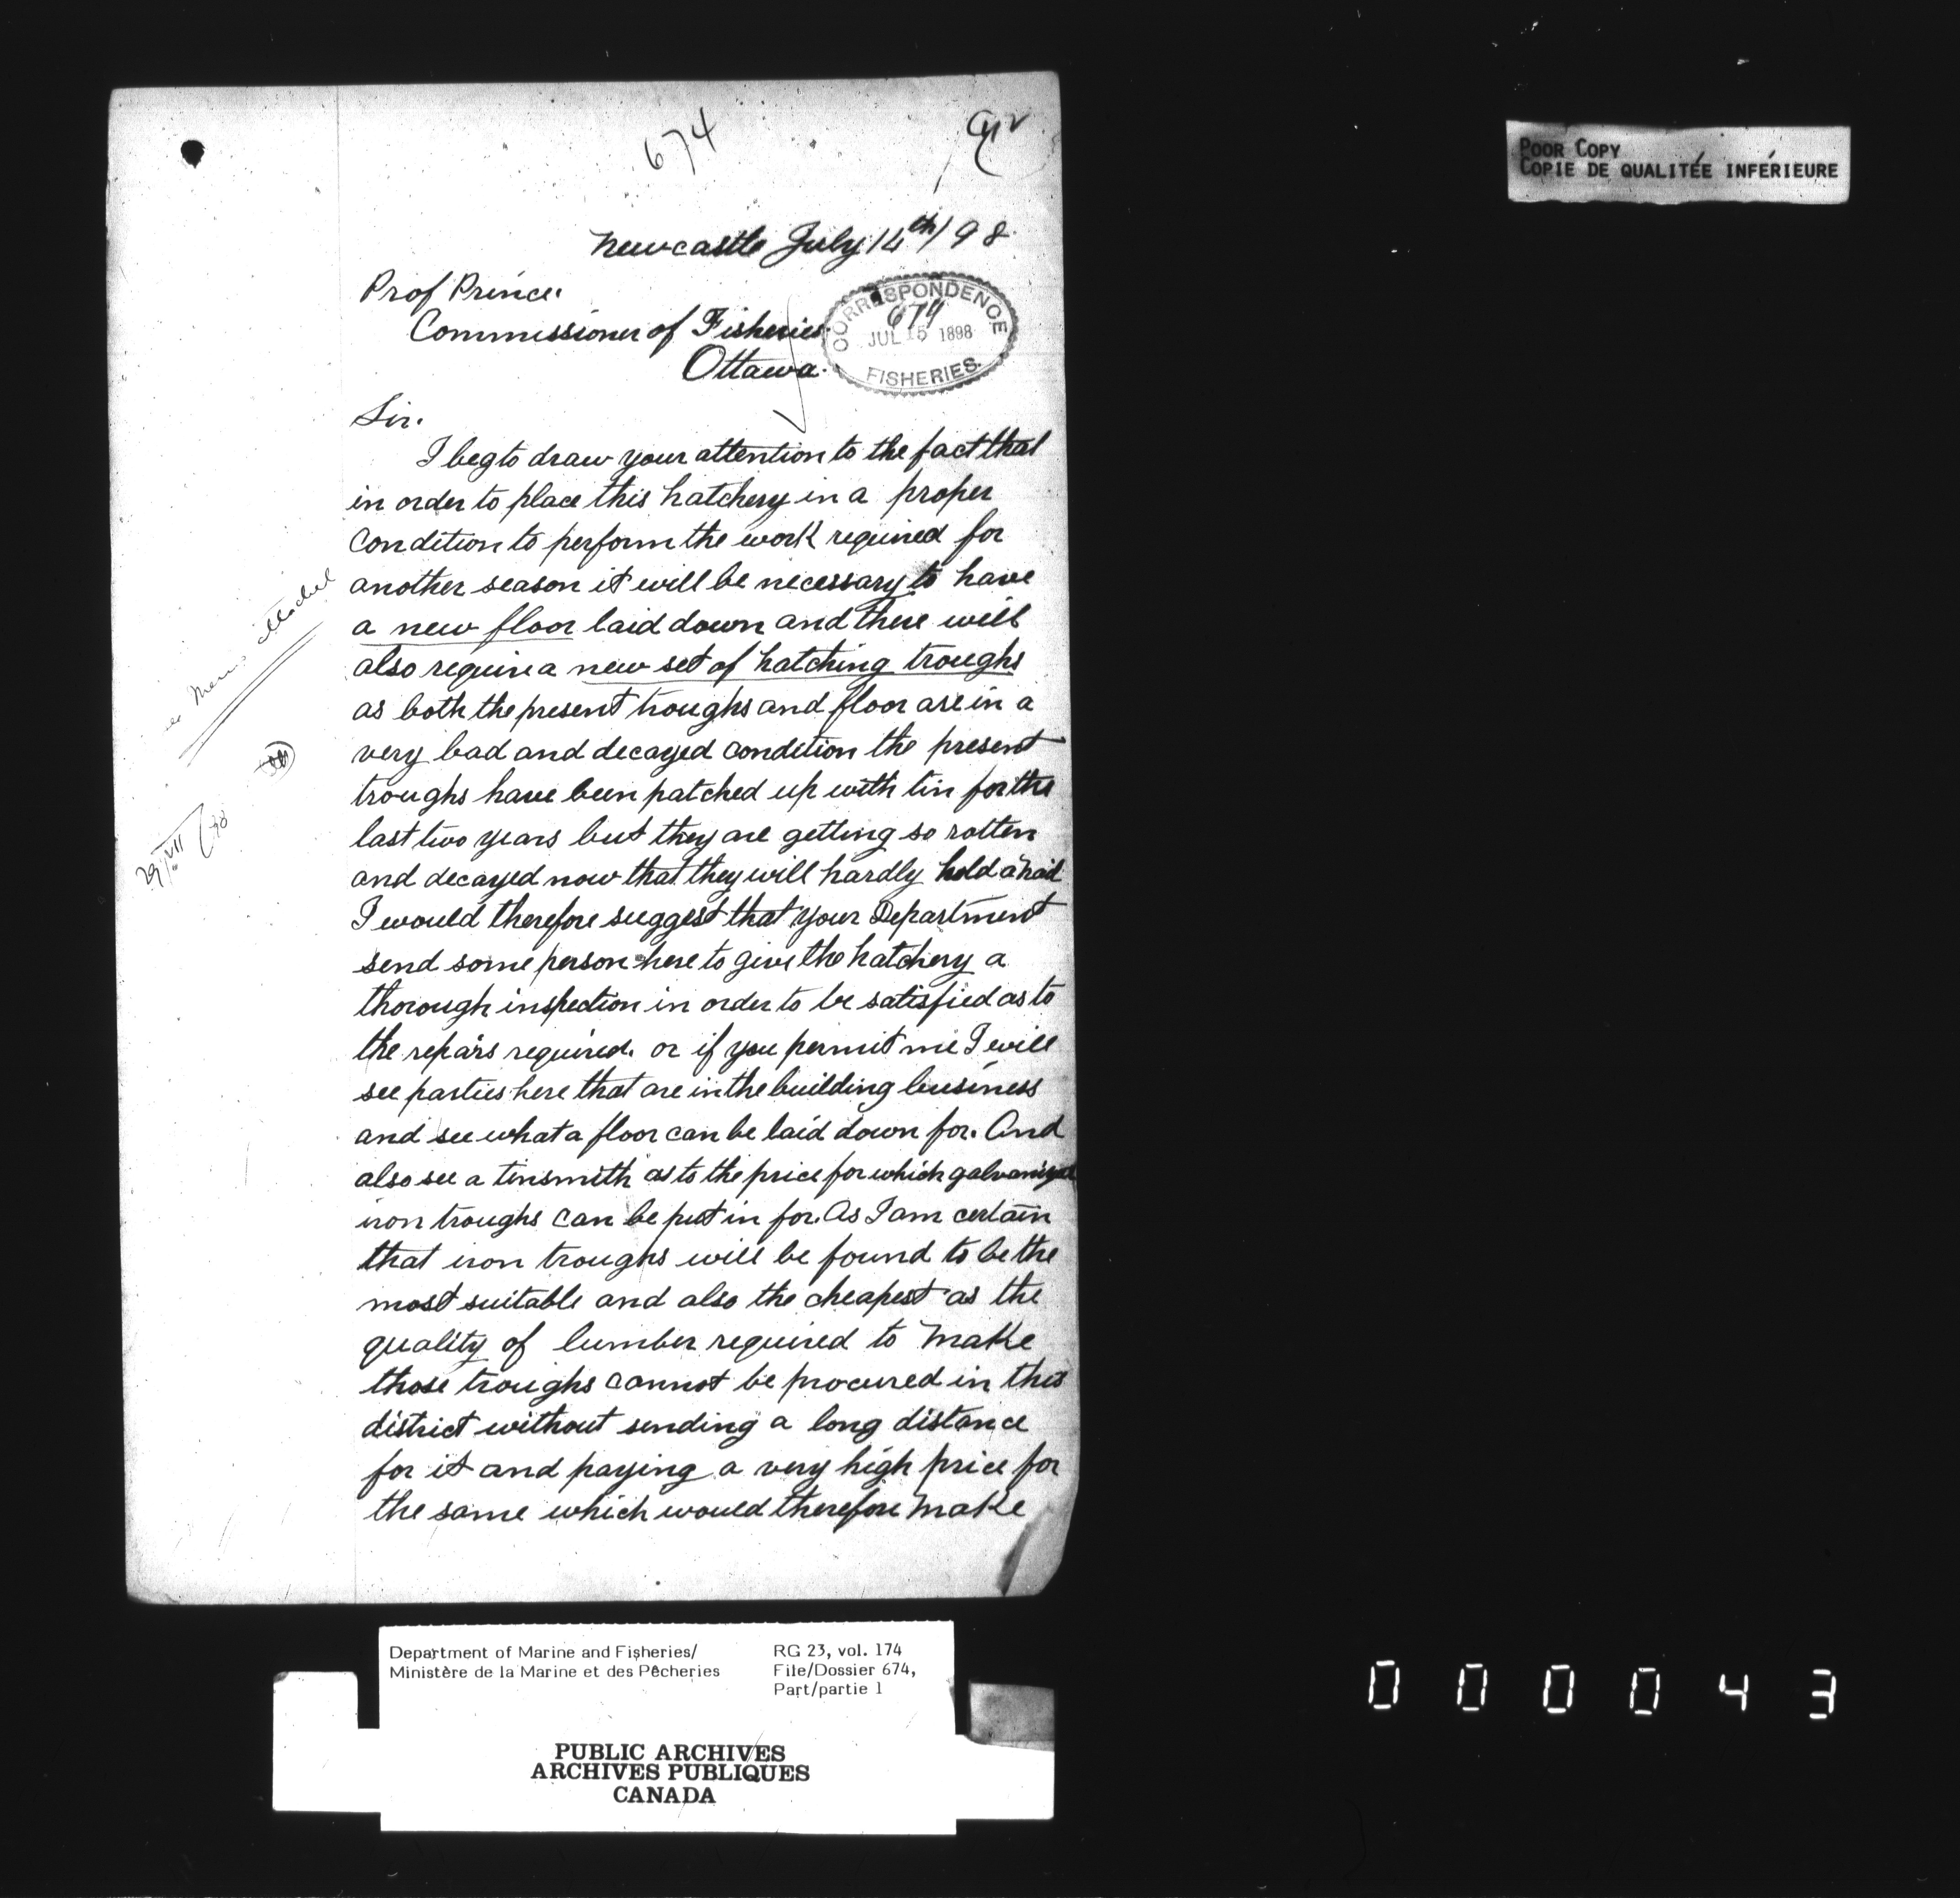 674
Newcastle July 14th/98
Prof Prince.
Commissioner of Fisheries
Ottawa.
CORRESPONDENCE
674
JUL 15 1898
FISHERIES.
Sir.
I beg to draw your attention to the fact that
in order to place this hatchery in a proper
condition to perform the work required for
another season it will be necessary to have
a new floor laid down and there will
also require a new set of hatching troughs
as both the present troughs and floor are in a
very bad and decayed condition the present
troughs have been patched up with tin for the
last two years but they are getting so rotten
and decayed now that they will hardly hold a nail
I would therefore suggest that your Department
send some person here to give the hatchery a
thorough inspection in order to be satisfied as to
the repairs required. or if you permit me I will
see parties here that are in the building business
and see what a floor can be laid down for. And
also see a tinsmith as to the price for which galvanized
iron troughs can be put in for. As I am certain
that iron troughs will be found to be the
most suitable and also the cheapest as the
quality of lumber required to make
those troughs cannot be procured in this
district without sending a long distance
for it and paying a very high price for
the same which would therefore make
Memo attached
29/VII/98
POOR COPY
COPIE DE QUALITÉE INFÉRIEURE
Department of Marine and Fisheries/
Ministère de la Marine et des Pêcheries
RG 23, vol. 174
File/Dossier 674,
Part/partie 1
PUBLIC ARCHIVES
ARCHIVES PUBLIQUES
CANADA
000043